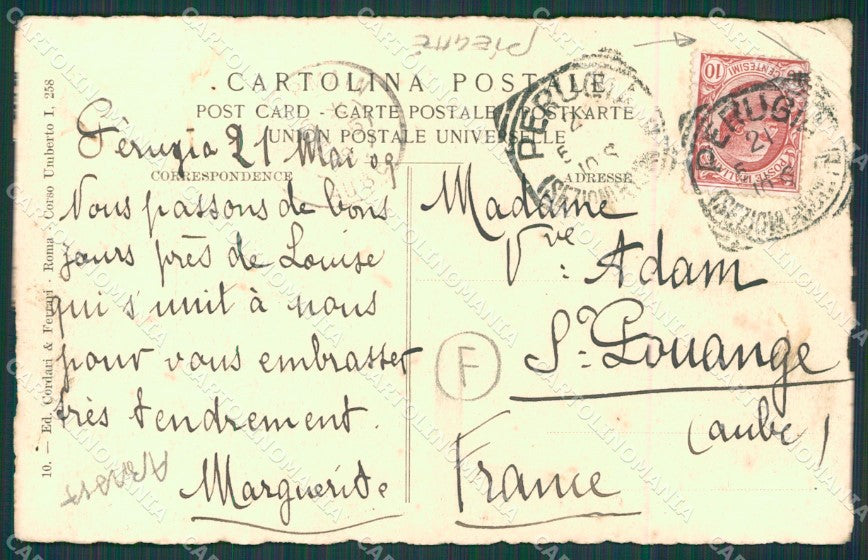 CARTOLINA POSTALE
POST CARD - CARTE POSTALE - POSTKARTE
UNION POSTALE UNIVERSELLE
CORRESPONDENCE
ADRESSE
Pérugia 21 Mai 09
Nous passons de bons
jours près de Louise
qui s'unit à nous
pour vous embrasser
très tendrement.
Marguerite
Madame
Vve Adam
St. Pouange
(aube)
France
F
10 CENTESIMI
POSTE ITALIANE
PERUGIA
21
5
PERUGIA
10. - Ed. Cordari & Ferrari - Roma - Corso Umberto I, 258
CARTOLINOMANIA